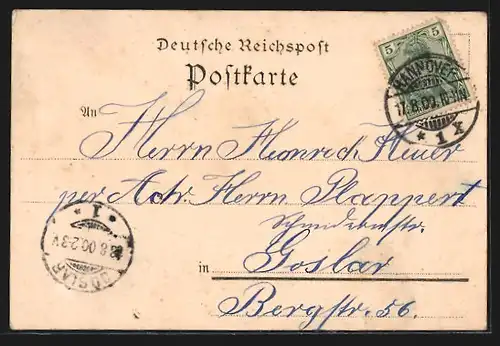 Deutsche Reichspost
Postkarte
5 5
HANNOVER
17.8.00.
* 1 X
An
Herrn Heinrich Heuer
per Adr. Herrn Plappert
Schmiedenstr.
* 1 *
8.00.2-3V
GOSLAR
in Goslar
Bergstr. 56.